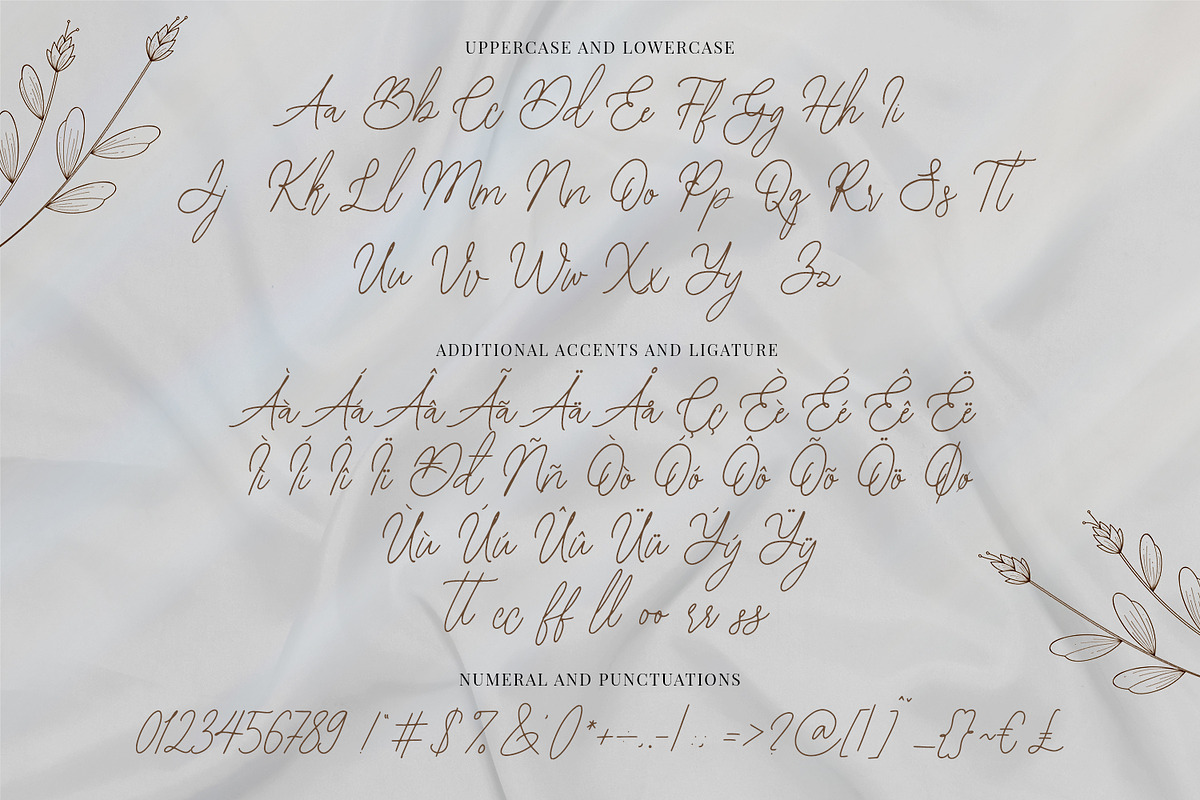 UPPERCASE AND LOWERCASE
Aa Bb Cc Dd Ee Ff Gg Hh Ii
Jj Kk Ll Mm Nn Oo Pp Qq Rr Ss Tt
Uu Vv Ww Xx Yy Zz
ADDITIONAL ACCENTS AND LIGATURE
Àà Áá Ââ Ãã Ää Åå Çç Èè Éé Êê Ëë
Ìì Íí Îî Ïï Đđ Ññ Òò Óó Ôô Õõ Öö Øø
Ùù Úú Ûû Üü Ýý Ÿÿ
tt cc ff ll oo rr ss
NUMERAL AND PUNCTUATIONS
0123456789 !" # $ % & ' () * + - . , . - / : ; = > ? @ [ \ ] ^ ˇ _ { } ~ € £